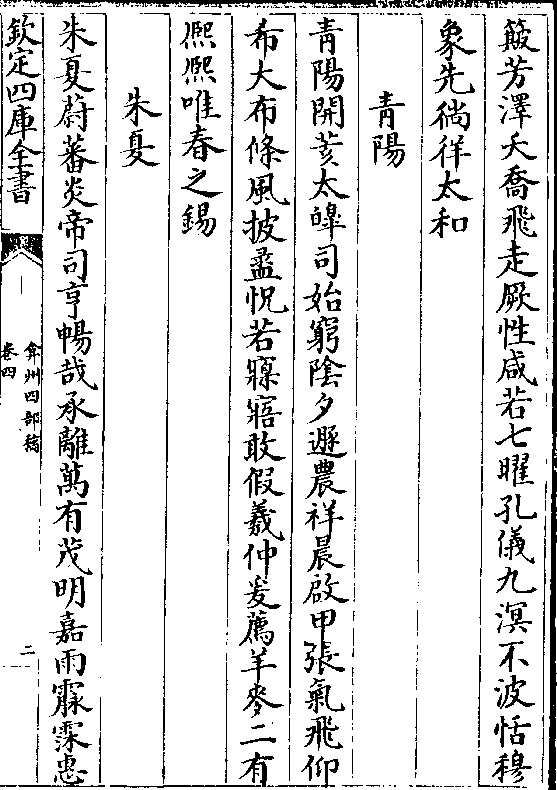 簸芳澤夭喬飛走厥性咸若七曜孔儀九溟不波恬穆
象先徜徉太和
青陽
青陽開荄太皡司始窮陰夕遯農祥晨啟甲張氣飛仰
希大布條風披盪怳若寐寤敢假羲仲爰薦羊麥二有
熈熈唯春之錫
朱夏
朱夏蔚蕃炎帝司亨暢哉承離萬有茂明嘉雨霡霂惠
欽定四庫全書
弇州四部稿
卷四
二